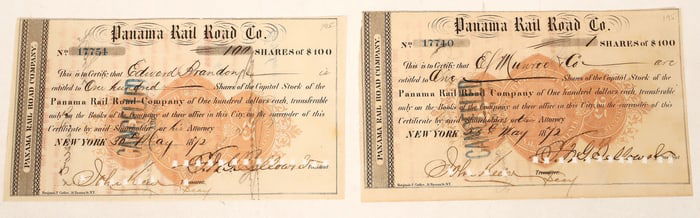 Panama Rail Road Co.
No 17754 100 SHARES of $100
This is to Certify that Edward Brandon is
entitled to One hundred Shares of the Capital Stock of the
Panama Rail Road Company of One hundred dollars each, transferable
only on the Books of the Company at their office in this City, on the surrender of this
Certificate by said Shareholder or his Attorney
NEW YORK May 1872
Treasurer.
PANAMA RAIL ROAD COMPANY.
CANCELLED
Panama Rail Road Co.
No 17740 1 SHARES of $100
This is to Certify that E/ Munroe & Co are
entitled to One Shares of the Capital Stock of the
Panama Rail Road Company of One hundred dollars each, transferable
only on the Books of the Company at their office in this City, on the surrender of this
Certificate by said Shareholder or his Attorney
NEW YORK May 1872
Treasurer.
Secy
PANAMA RAIL ROAD COMPANY.
CANCELLED